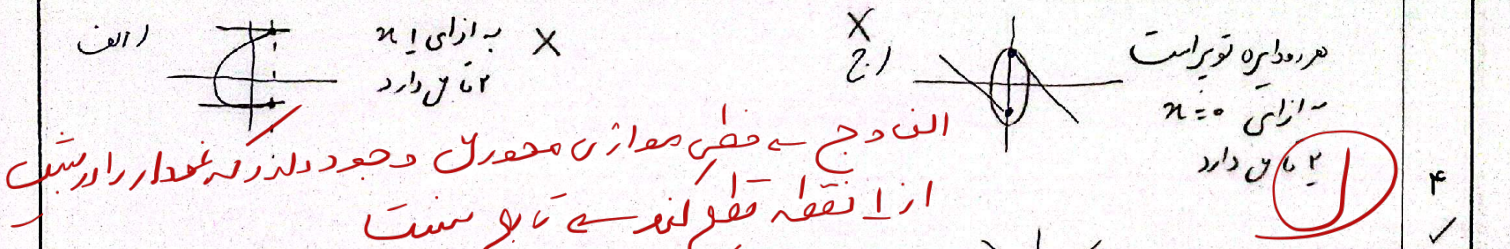 الف) به ازای ۱ x
۲ تا y دارد
ج) هر دو دایره توپر است
به ازای x = ۰
۲ تا y دارد
الف و ج ← خطی موازی محور y وجود دارد که نمودار را در بیش
از ۱ نقطه قطع کند ← تابع نیست
۴